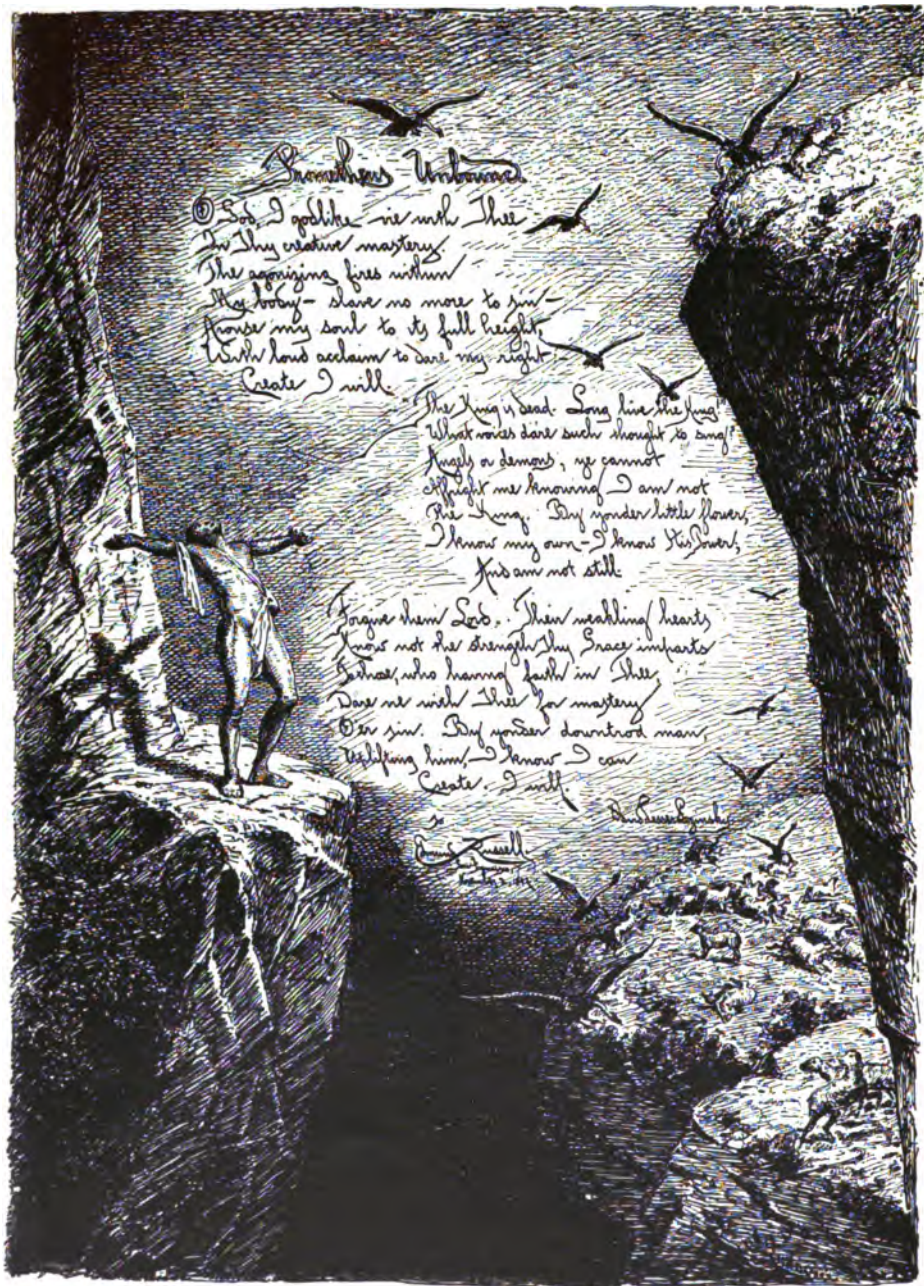 Prometheus Unbound.
O God, I godlike vie with Thee
In Thy creative mastery.
The agonizing fires within
My body – slave no more to sin –
Arouse my soul to its full height,
With loud acclaim to dare my right –
Create I will.
"The King is dead. Long live the King"
What voices dare such thought to sing?
Angels or demons, ye cannot
Affright me knowing I am not
The King. By yonder little flower,
I know my own – I know His Power,
And am not still.
Forgive them Lord. Their weakling hearts
Know not the strength Thy Grace imparts
To those, who having faith in Thee,
Dare vie with Thee for mastery
O'er sin. By yonder downtrod man,
Uplifting him, – I know I can
Create. I will.
To
Russell